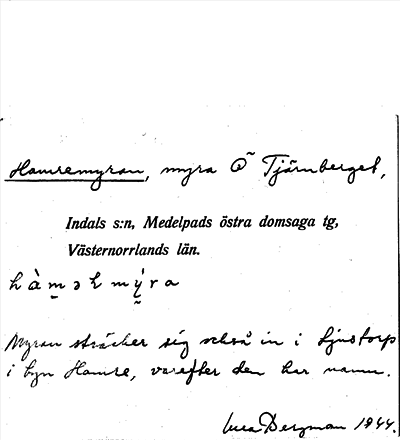 Hamremyran, myra Ö Tjärnberget,
Indals s:n, Medelpads östra domsaga tg,
Västernorrlands län.
hàm̲ərmý̰ra
Myran sträcker sig också in i Ljustorp
i byn Hamre, varefter den har namn.
Bergman 1944.